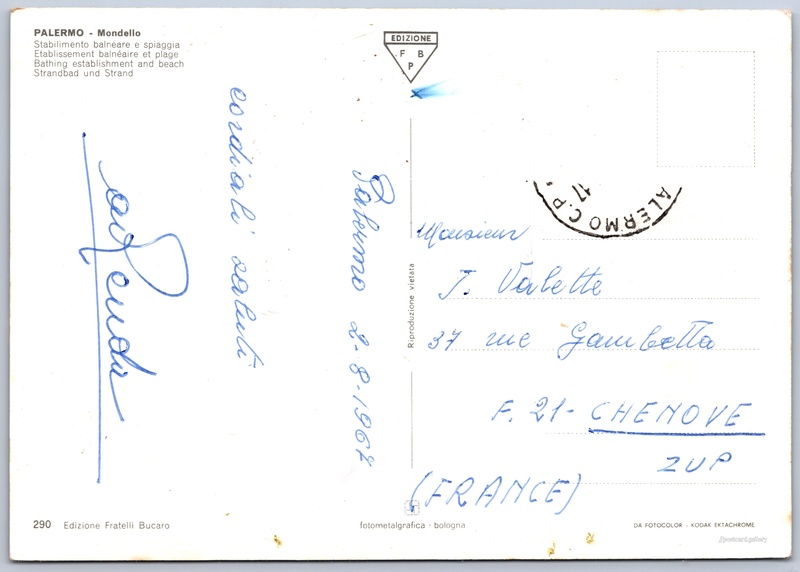 PALERMO - Mondello
Stabilimento balneare e spiaggia
Etablissement balnéaire et plage
Bathing establishment and beach
Strandbad und Strand
EDIZIONE
F B
P
Palermo 2-8-1967
cordiali saluti
Monsieur
J. Valette
37 rue Gambetta
F. 21- CHENOVE
ZUP
(FRANCE)
ALERMO C.P.
17
Riproduzione vietata
290 Edizione Fratelli Bucaro
fotometalgrafica - bologna
DA FOTOCOLOR - KODAK EKTACHROME